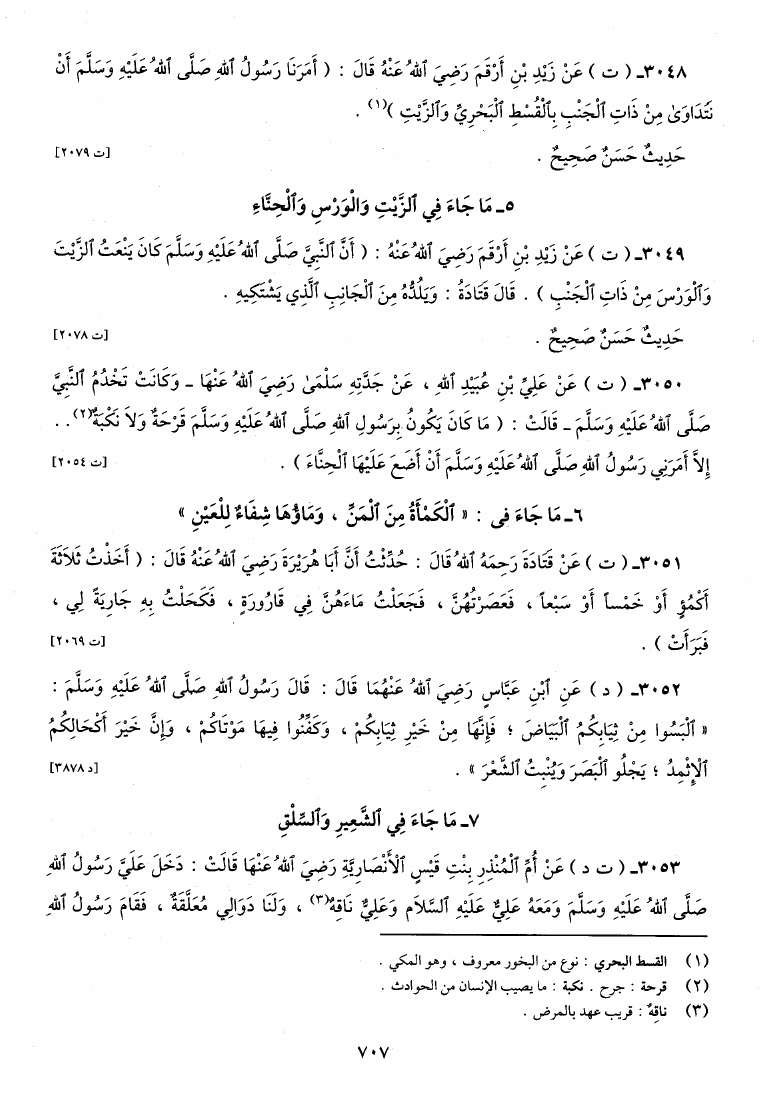 ٣٠٤٨ـ ( ت ) عَنْ زَيْدِ بْنِ أَرْقَمَ رَضِيَ ٱللهُ عَنْهُ قَالَ : ( أَمَرَنَا رَسُولُ ٱللهِ صَلَّى ٱللهُ عَلَيْهِ وَسَلَّمَ أَنْ
نَتَدَاوَىٰ مِنْ ذَاتِ ٱلْجَنْبِ بِٱلْقُسْطِ ٱلْبَحْرِيِّ وَٱلزَّيْتِ )(١) .
حَدِيثٌ حَسَنٌ صَحِيحٌ . [ت ٢٠٧٩]
٥ـ مَا جَاءَ فِي ٱلزَّيْتِ وَٱلْوَرْسِ وَٱلْحِنَّاءِ
٣٠٤٩ـ ( ت ) عَنْ زَيْدِ بْنِ أَرْقَمَ رَضِيَ ٱللهُ عَنْهُ : ( أَنَّ ٱلنَّبِيَّ صَلَّى ٱللهُ عَلَيْهِ وَسَلَّمَ كَانَ يَنْعَتُ ٱلزَّيْتَ
وَٱلْوَرْسَ مِنْ ذَاتِ ٱلْجَنْبِ ) . قَالَ قَتَادَةُ : وَيَلُدُّهُ مِنَ ٱلْجَانِبِ ٱلَّذِي يَشْتَكِيهِ .
حَدِيثٌ حَسَنٌ صَحِيحٌ . [ت ٢٠٧٨]
٣٠٥٠ـ ( ت ) عَنْ عَلِيِّ بْنِ عُبَيْدِ ٱللهِ ، عَنْ جَدَّتِهِ سَلْمَىٰ رَضِيَ ٱللهُ عَنْهَا ـ وَكَانَتْ تَخْدُمُ ٱلنَّبِيَّ
صَلَّى ٱللهُ عَلَيْهِ وَسَلَّمَ ـ قَالَتْ : ( مَا كَانَ يَكُونُ بِرَسُولِ ٱللهِ صَلَّى ٱللهُ عَلَيْهِ وَسَلَّمَ قَرْحَةٌ وَلاَ نَكْبَةٌ(٢) . .
إِلاَّ أَمَرَنِي رَسُولُ ٱللهِ صَلَّى ٱللهُ عَلَيْهِ وَسَلَّمَ أَنْ أَضَعَ عَلَيْهَا ٱلْحِنَّاءَ ) . [ت ٢٠٥٤]
٦ـ مَا جَاءَ فى : « ٱلْكَمْأَةُ مِنَ ٱلْمَنِّ ، وَمَاؤُهَا شِفَاءٌ لِلْعَيْنِ »
٣٠٥١ـ ( ت ) عَنْ قَتَادَةَ رَحِمَهُ ٱللهُ قَالَ : حُدِّثْتُ أَنَّ أَبَا هُرَيْرَةَ رَضِيَ ٱللهُ عَنْهُ قَالَ : ( أَخَذْتُ ثَلاَثَةَ
أَكْمُؤٍ أَوْ خَمْساً أَوْ سَبْعاً ، فَعَصَرْتُهُنَّ ، فَجَعَلْتُ مَاءَهُنَّ فِي قَارُورَةٍ ، فَكَحَلْتُ بِهِ جَارِيَةً لِي ،
فَبَرَأَتْ ) . [ت ٢٠٦٩]
٣٠٥٢ـ ( د ) عَنِ ٱبْنِ عَبَّاسٍ رَضِيَ ٱللهُ عَنْهُمَا قَالَ : قَالَ رَسُولُ ٱللهِ صَلَّى ٱللهُ عَلَيْهِ وَسَلَّمَ :
« ٱلْبَسُوا مِنْ ثِيَابِكُمُ ٱلْبَيَاضَ ؛ فَإِنَّهَا مِنْ خَيْرِ ثِيَابِكُمْ ، وَكَفِّنُوا فِيهَا مَوْتَاكُمْ ، وَإِنَّ خَيْرَ أَكْحَالِكُمُ
ٱلإِثْمِدُ ؛ يَجْلُو ٱلْبَصَرَ وَيُنْبِتُ ٱلشَّعْرَ » . [د ٣٨٧٨]
٧ـ مَا جَاءَ فِي ٱلشَّعِيرِ وَٱلسِّلْقِ
٣٠٥٣ـ ( ت د ) عَنْ أُمِّ ٱلْمُنْذِرِ بِنْتِ قَيْسٍ ٱلأَنْصَارِيَّةِ رَضِيَ ٱللهُ عَنْهَا قَالَتْ : دَخَلَ عَلَيَّ رَسُولُ ٱللهِ
صَلَّى ٱللهُ عَلَيْهِ وَسَلَّمَ وَمَعَهُ عَلِيٌّ عَلَيْهِ ٱلسَّلاَمِ وَعَلِيٌّ نَاقِهٌ(٣) ، وَلَنَا دَوَالِي مُعَلَّقَةٌ ، فَقَامَ رَسُولُ ٱللهِ
(١) القسط البحري : نوع من البخور معروف ، وهو المكي .
(٢) قرحة : جرح . نكبة : ما يصيب الإنسان من الحوادث .
(٣) ناقِهٌ : قريب عهد بالمرض .
٧٠٧